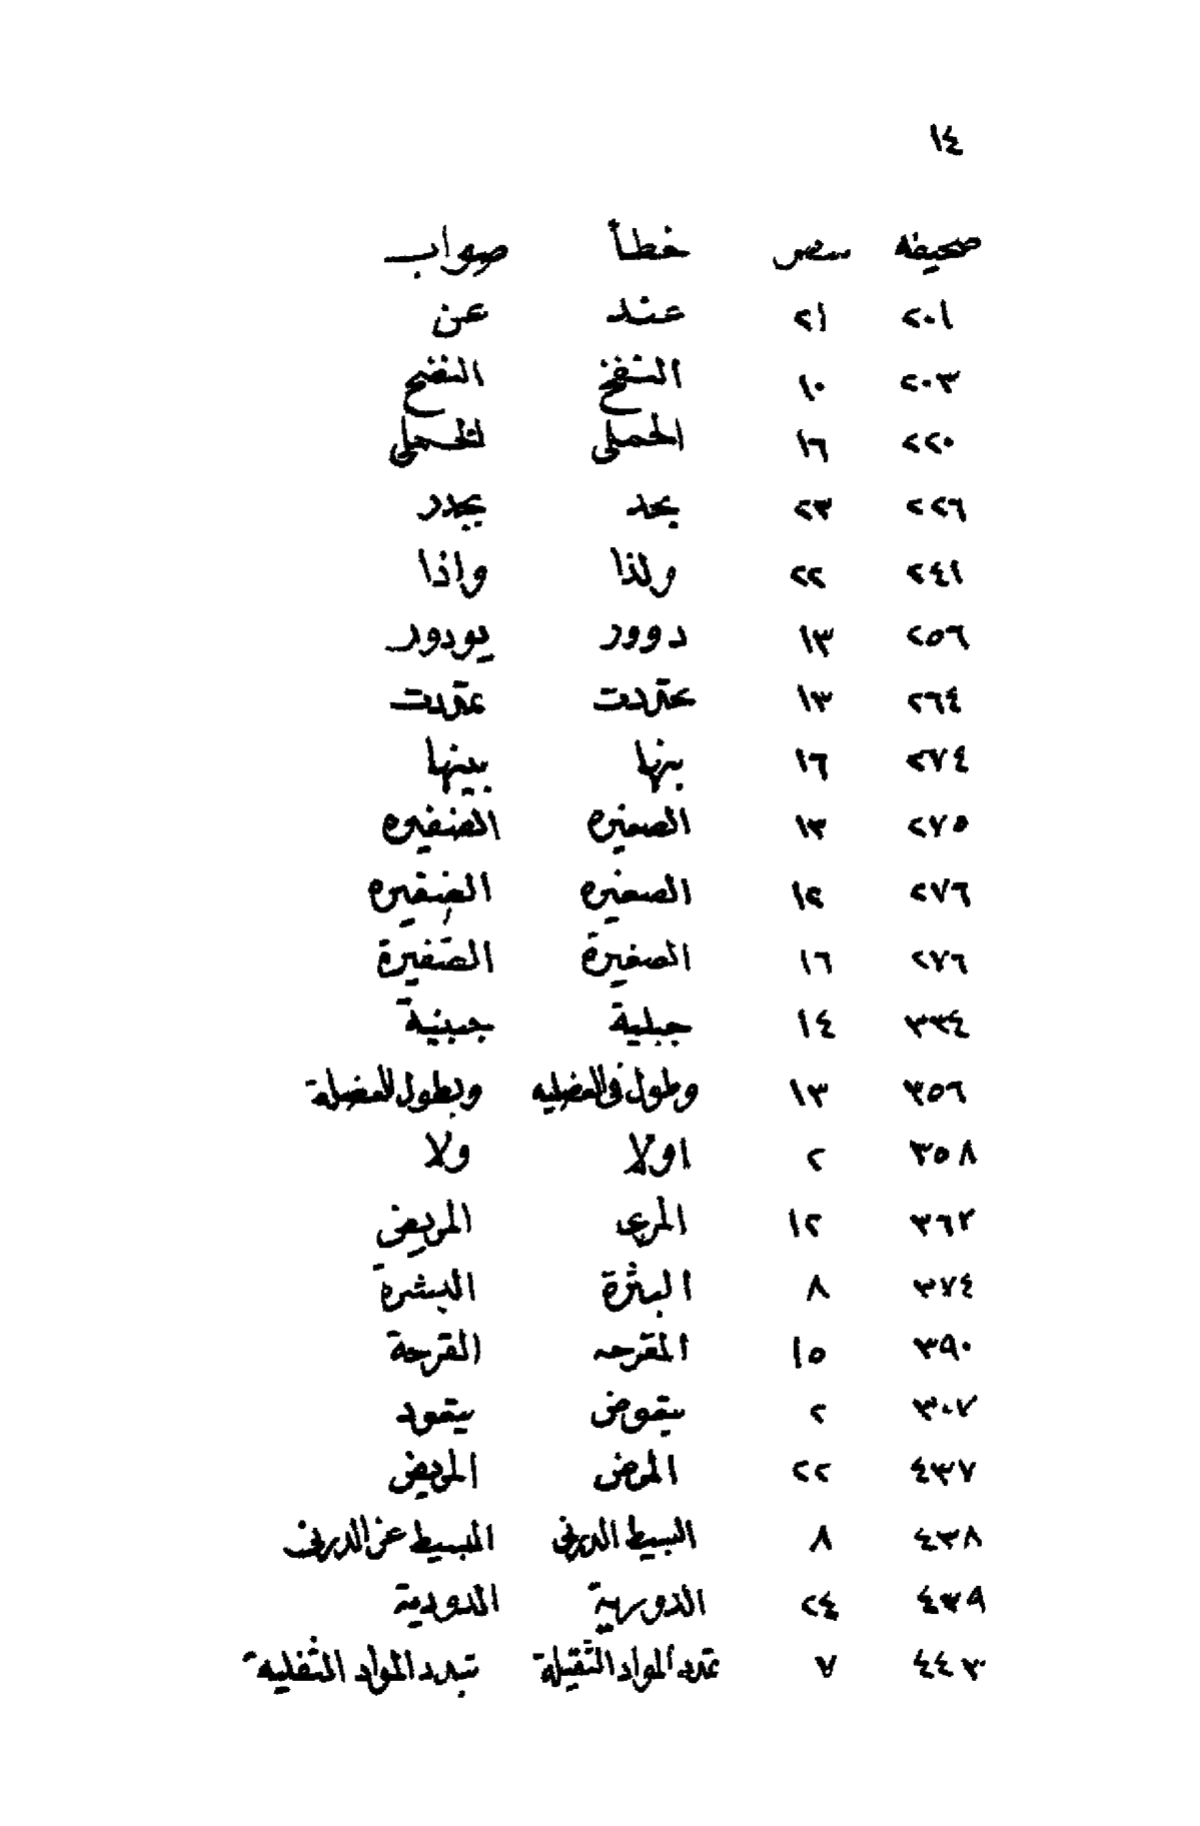 ١٤
صحيفة سطر خطأ صواب
٢٠١ ٢١ عند عن
٢٠٣ ١٠ النفخ النضج
٢٢٠ ١٦ الحملى
٢٢٦ ٢٣ يجد يجدر
٢٤١ ٢٢ ولذا واذا
٢٥٦ ١٣ دوور يودور
٢٦٤ ١٣
٢٧٤ ١٦ بنها بينها
٢٧٥ ١٣ الصغيره الضفيره
٢٧٦ ١٢ الصغيره الضفيره
٢٧٦ ١٦ الصغيرة الضفيرة
٣٣٤ ١٤ جبلية جبنية
٣٥٦ ١٣ وطول فى العضليه وبطول العضلة
٣٥٨ ٢ اولا ولا
٣٦٢ ١٢ المرى المريض
٣٧٤ ٨ البثرة البشرة
٣٩٠ ١٥ المقرحه القرحة
٣٠٧ ٢ يقوض يقود
٤٣٧ ٢٢ المرض المريض
٤٣٨ ٨ البسيط الدرنى البسيط عن الدرنى
٤٣٩ ٢٤ الدورية الدودية
٤٤٣ ٧ تمدد المواد الثقيلة تبدد المواد الثفلية